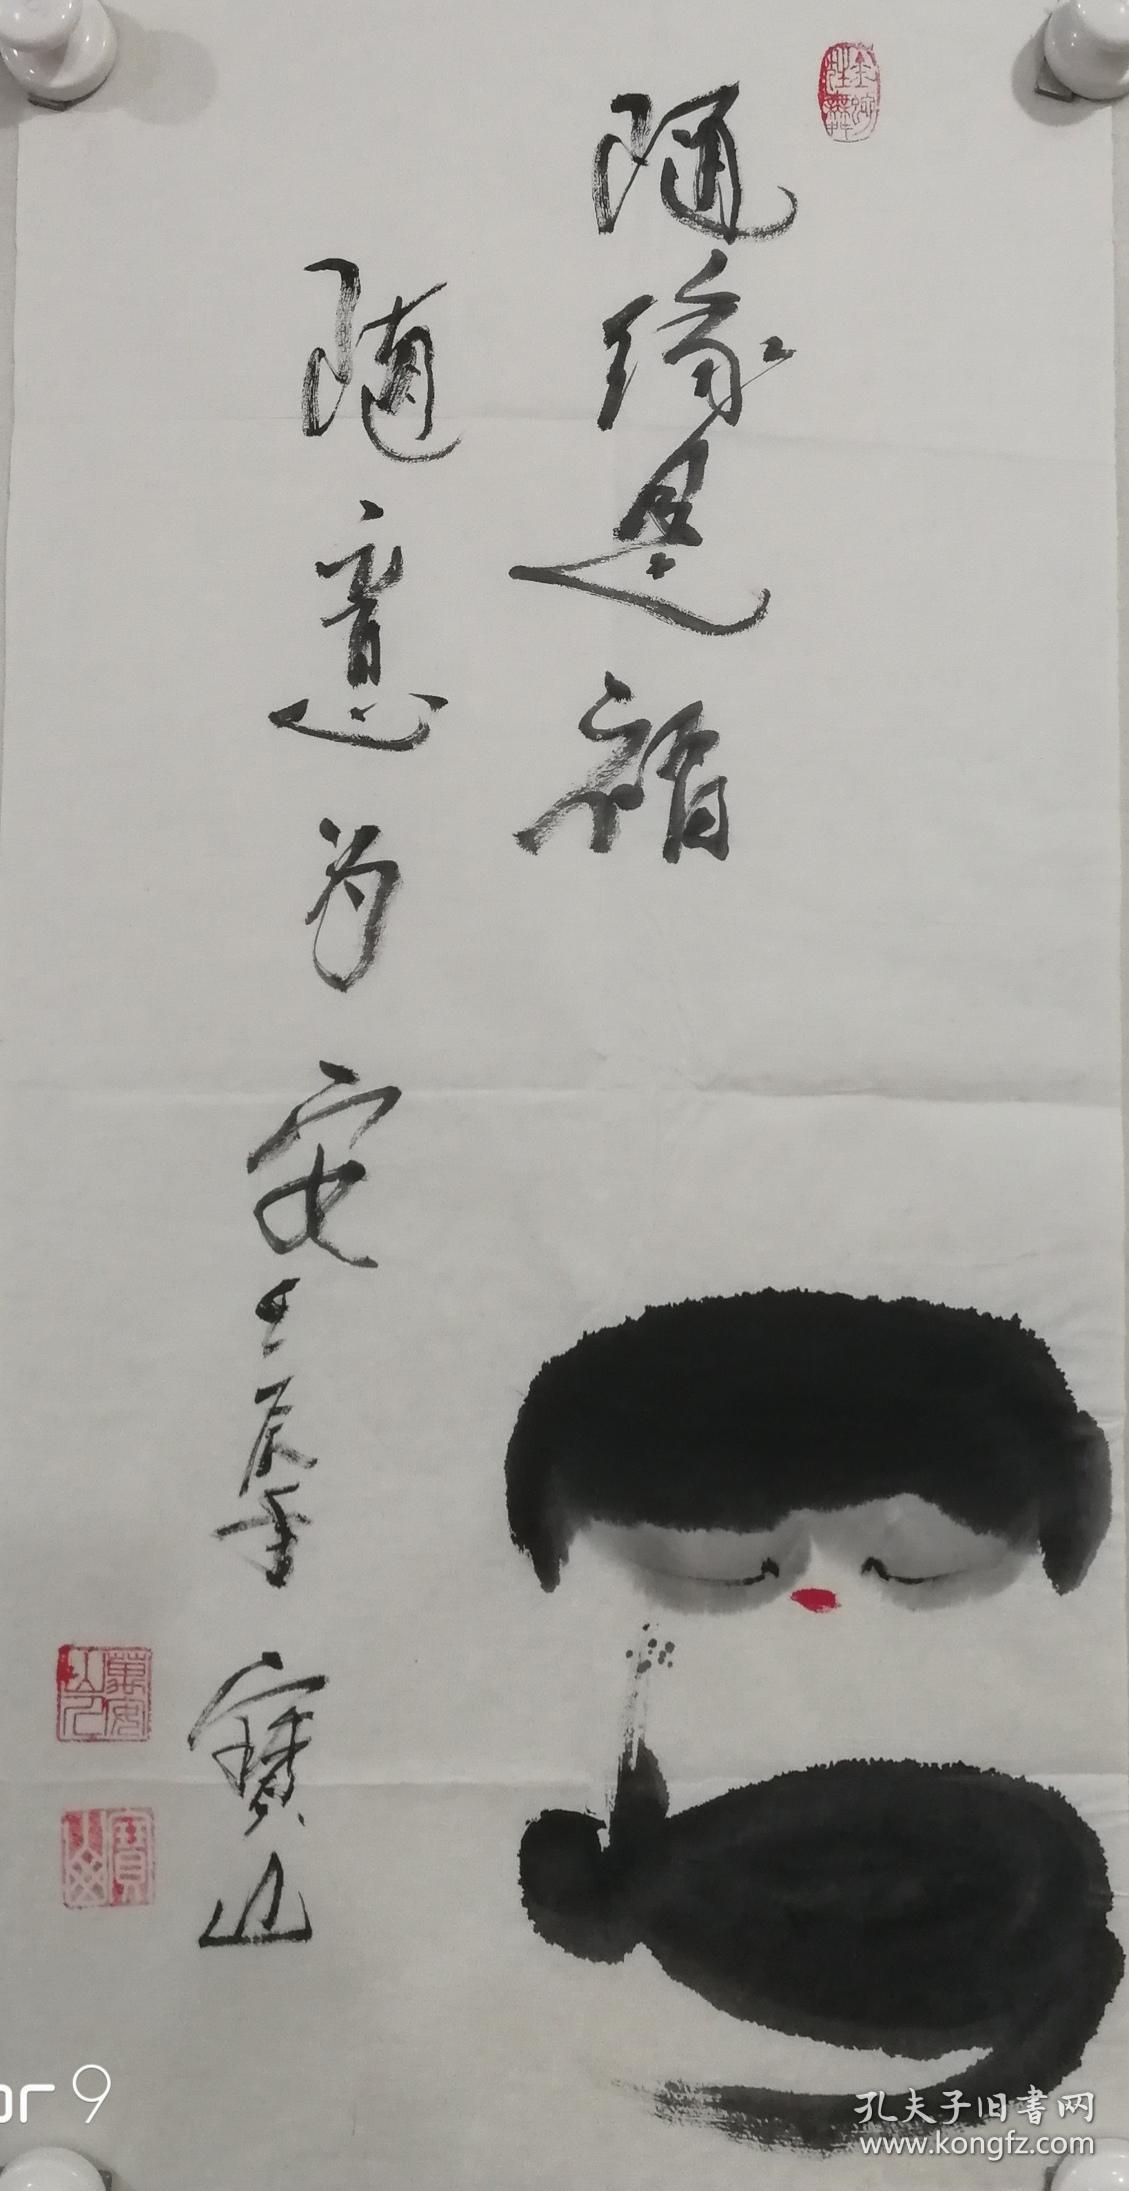 随缘是福
随意为安
壬辰年
寶山
寶山
or 9
孔夫子旧書网
www.kongfz.com